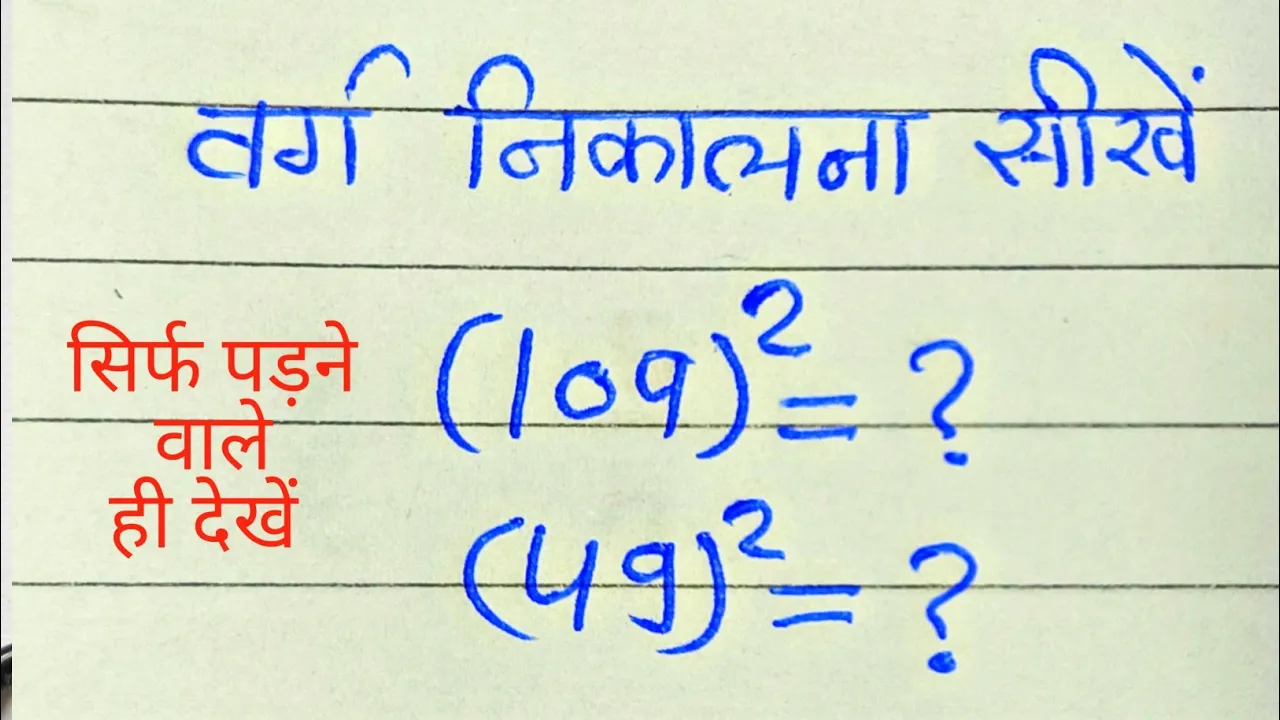 वर्ग निकालना सीखें
सिर्फ पड़ने
वाले
ही देखें
(109)² = ?
(49)² = ?